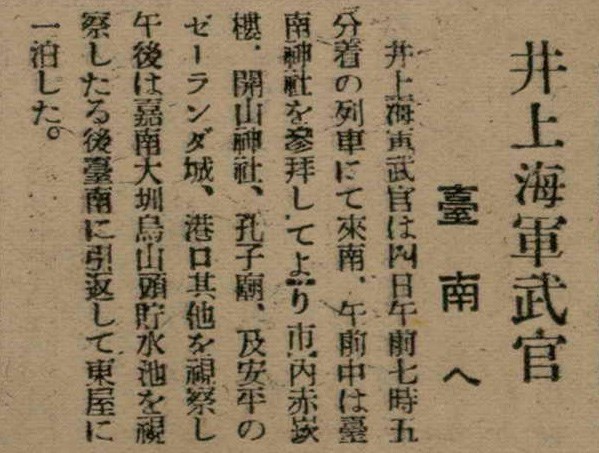 井上海軍武官
臺南へ
井上海軍武官は四日午前七時五
分着の列車にて來南、午前中は臺
南神社を參拜してより市內赤崁
樓、開山神社、孔子廟、及安平の
ゼーランダ城、港口其他を視察し
午後は嘉南大圳烏山頭貯水池を視
察したる後臺南に引返して東屋に
一泊した。